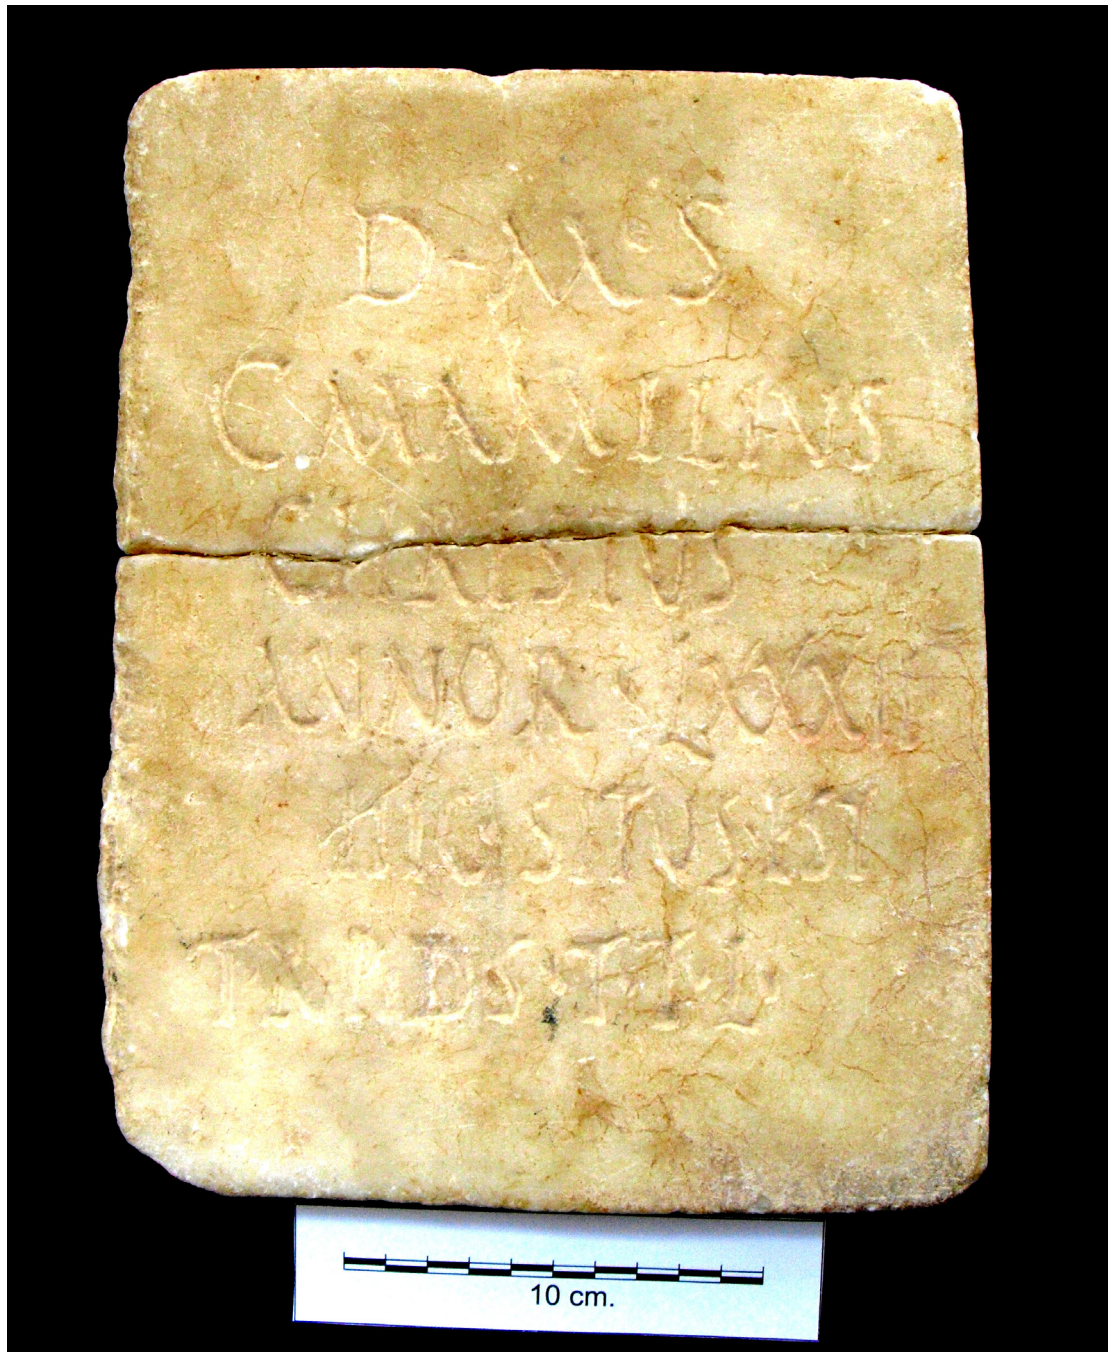 D·M·S
C MAMILIVS
CHRESTVS
ANNOR LXXXII
HIC SITVS EST
T R P D S·T·T·L